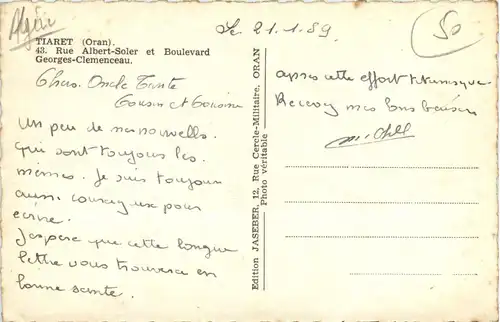 Algérie
TIARET (Oran).
43. Rue Albert-Soler et Boulevard
Georges-Clemenceau.
Le 21.1.59
50
Chers Oncle Tante
Cousin et Cousine
Un peu de mes nouvells.
qui sont toujours les
mêmes. Je suis toujours
aussi courageux pour
écrire.
J'espere que cette longue
lettre vous trouvera en
bonne sante.
Edition JASEBER, 12, Rue Cercle-Militaire, ORAN
Photo véritable
apres cette effort
Recevez mes bons baisers
Michel